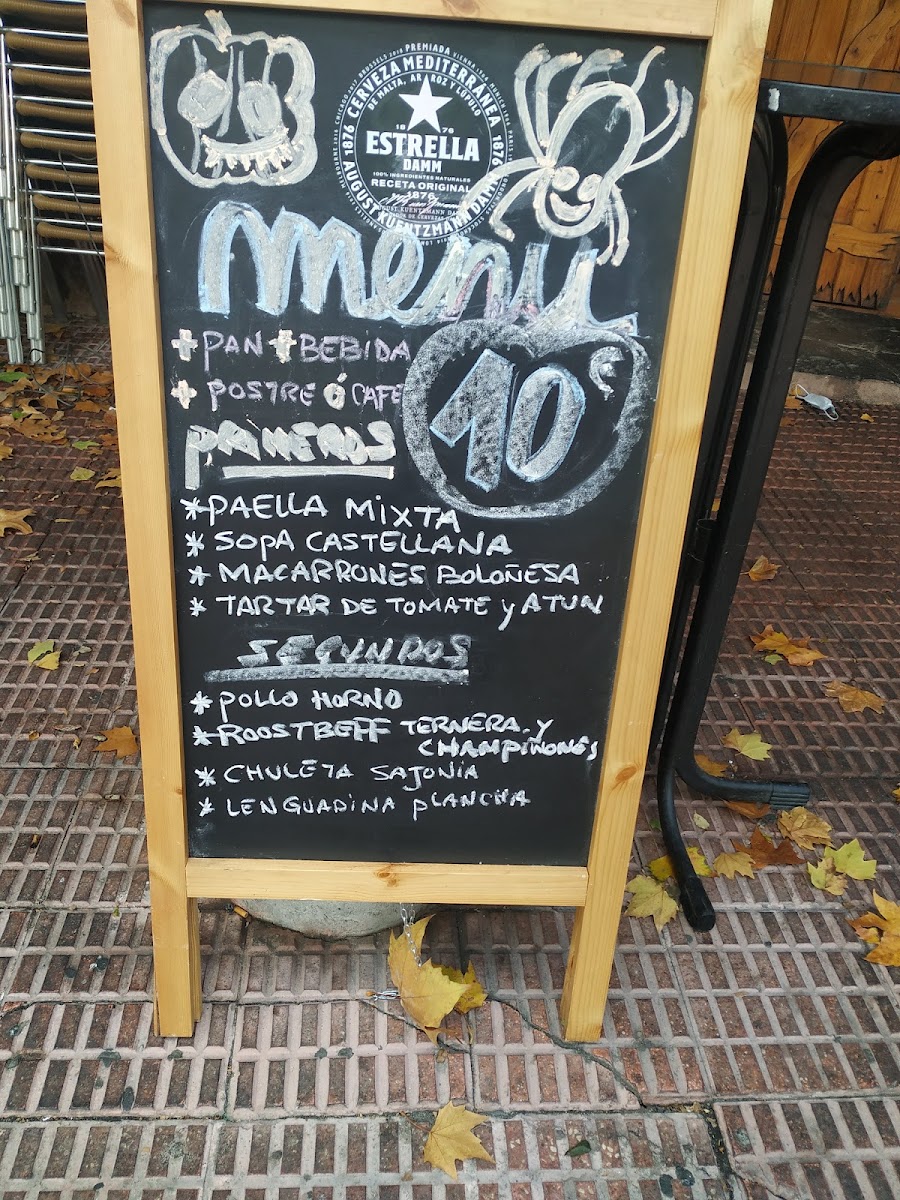 CERVEZA MEDITERRÁNEA
DE MALTA, ARROZ Y LÚPULO
1876
1876
18 76
ESTRELLA
DAMM
100% INGREDIENTES NATURALES
RECETA ORIGINAL
1876
AUGUST KUENTZMANN DAMM
menu
+ PAN + BEBIDA
+ POSTRE Ó CAFE
10€
PRIMEROS
* PAELLA MIXTA
* SOPA CASTELLANA
* MACARRONES BOLOÑESA
* TARTAR DE TOMATE y ATUN
SEGUNDOS
* POLLO HORNO
* ROOSTBEFF TERNERA Y
CHAMPIÑONES
* CHULETA SAJONIA
* LENGUADINA PLANCHA